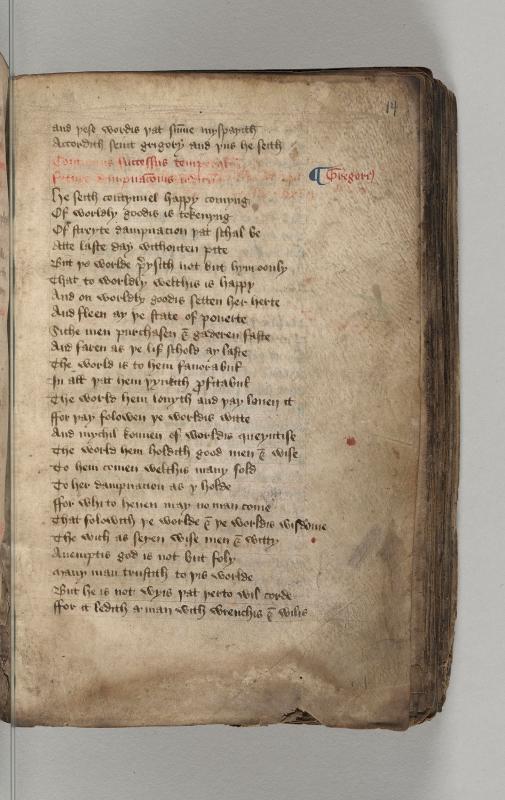 14
and þese wordis þat sume myspayith
Accordith seint grigory and þus he seith
Continuus successus temporalium
Future dampnacionis
¶ Gregori9
He seith contynuel happy comyng
Of worldly goodis is tokenyng
Of streyte dampnacion þat schal be
Atte laste day withouten pite
But þe worlde p̱ysith not but hym oonly
That to worldly welthis is happy
And on worldly goodis setten her herte
And fleen ay þe state of pouerte
Siche men purchasen & gaderen faste
And faren as þe lif schold ay laste
The world is to hem fauorabul
In alle þat hem þynkith ꝓfitabul
The world hem louyth and þay louen it
ffor þay folowen þe worldis witte
And mychil konnen of worldis queyntise
The world hem holdith good men & wise
To hem comen welthis many fold
To her dampnacion as y holde
ffor whi to heuen may no man come
That folowith þe worlde & þe worldis wisdome
The wich as seyen wise men & witty
Auemptis god is not but foly
Many man trustith to þis worlde
But he is not wyis þat þerto wil corde
ffor it ledith a man with wrenchis & wilis